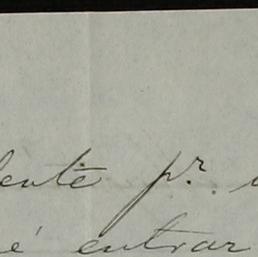 lente pr.
é entrar